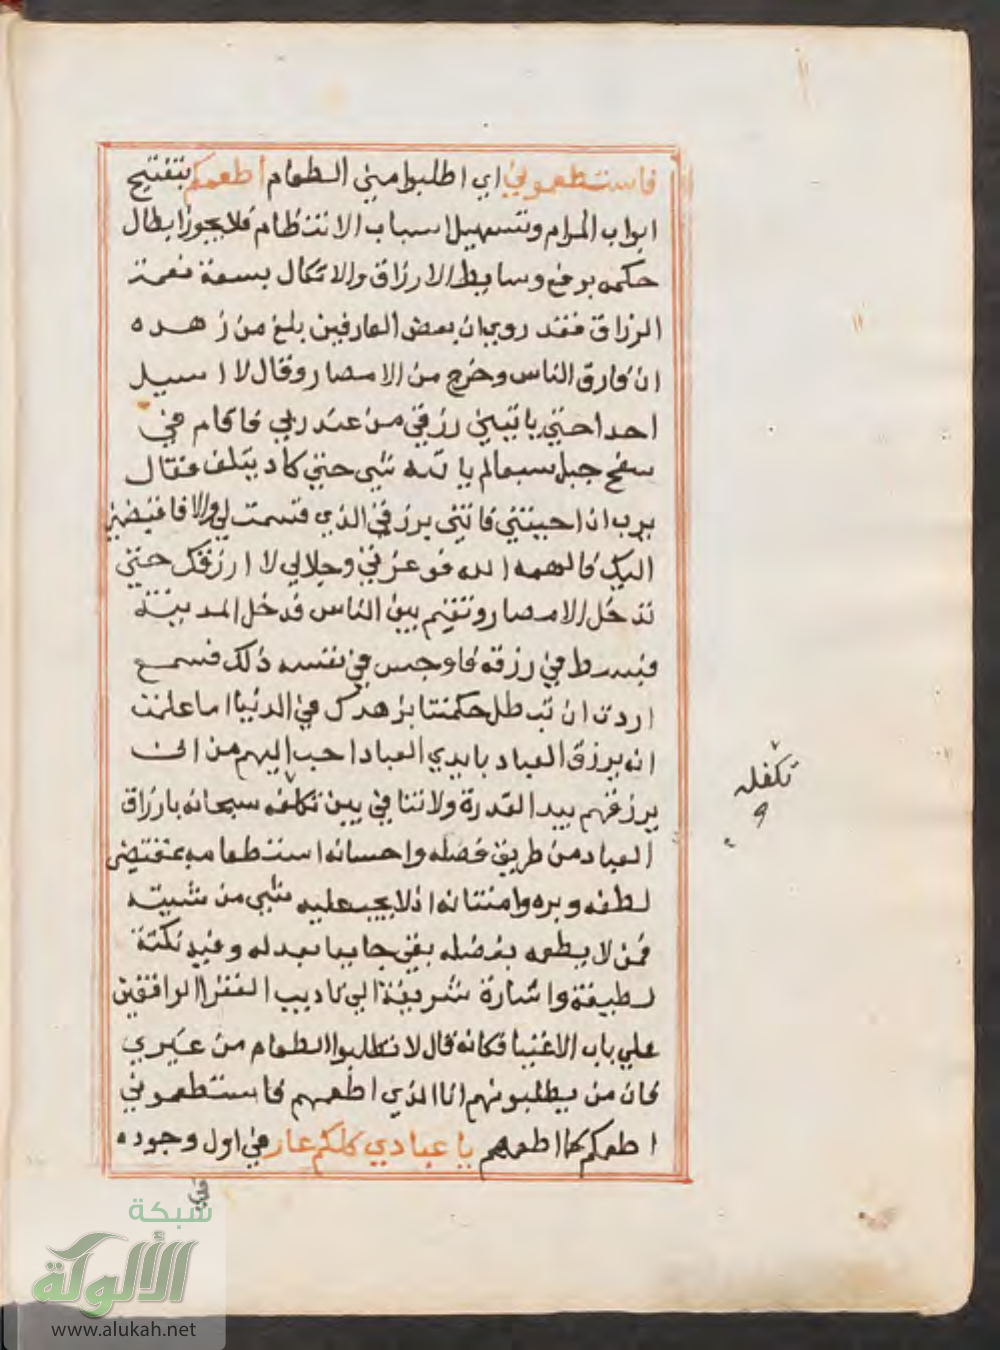 فاستطعموني اي اطلبوا مني الطعام اطعمكم بتفتيح
ابواب المرام وتسهيل اسباب الانتظام فلا يجوز ابطال
حكمه برفع وسايط الارزاق والاتكال بسعة نعمة
الرزاق فقد روي ان بعض العارفين بلغ من زهده
ان فارق الناس وخرج من الامصار وقال لا اسيل
احدا حتي ياتيني رزقي من عند ربي فاقام في
سفح جبل سبعا لم ياته شي حتي كاد يتلف فقال
يرب ان احببتني فاتني برزقي الذي قسمت لي والا فاقبضني
اليك فالهمه الله فوعزتي وجلالي لا ارزقك حتي
تدخل الامصار وتقيم بين الناس فدخل المدينة
فبسط في رزقه فاوجس في نفسه ذلك فسمع
اردت ان تبطل حكمتنا بزهدك في الدنيا اما علمت
انه يرزق العباد بايدي العباد احب اليهم من ان
يرزقهم بيد القدرة ولا تنافي بين تكلفه سبحانه بارزاق
العباد من طريق فضله واحسانه استطعامه بمقتضي
لطفه وبره وامتنانه اذ لا يجب عليه شي من شيته
فمن لا يطعمه بفضله بقي جايعا بعدله وفيه نكتة
لطيفة واشارة شريفة الي تاديب الفقرا الواقفين
علي باب الاغنيا فكانه قال لا تطلبوا الطعام من غيري
فان من يطلبونهم انا الذي اطعمهم فاستطعموني
اطعمكم كما اطعمهم يا عبادي كلكم عار في اول وجوده
تكفله
شبكة
الألوكة
www.alukah.net